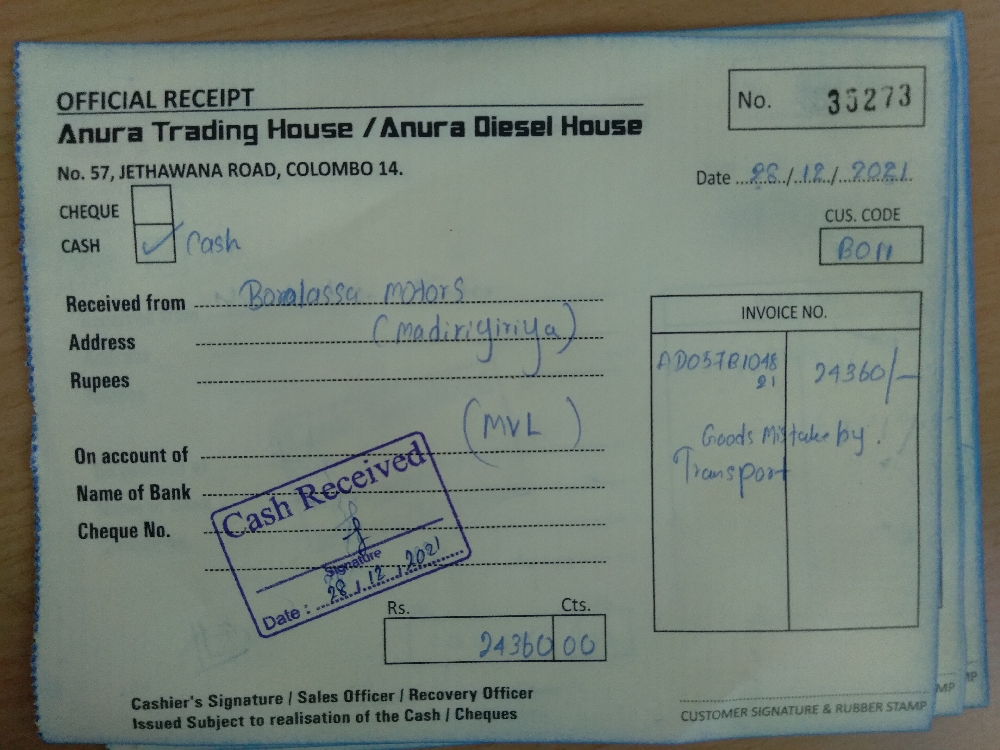 OFFICIAL RECEIPT
Anura Trading House / Anura Diesel House
No. 57, JETHAWANA ROAD, COLOMBO 14.
No. 35273
Date 28/12/2021
CHEQUE
CASH ✓ Cash
CUS. CODE
B011
Received from Boralassa motors
Address (Madirigiriya)
Rupees
(MVL)
On account of
Name of Bank
Cheque No.
INVOICE NO.
AD057B1048 24360/-
21
Goods Mistake by.
Transport
Cash Received
Signature
Date : 28.12.2021
Rs. Cts.
24360 00
Cashier's Signature / Sales Officer / Recovery Officer
Issued Subject to realisation of the Cash / Cheques
CUSTOMER SIGNATURE & RUBBER STAMP
MP
MP